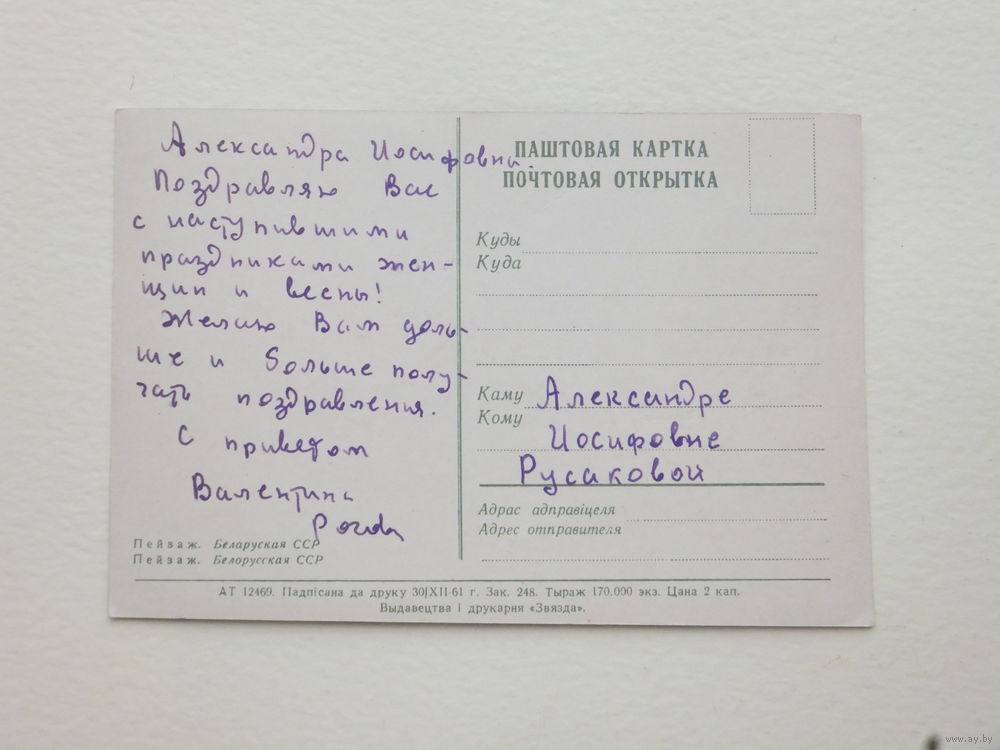 Александра Иосифовна.
Поздравляю Вас
с наступившими
праздниками жен-
щин и весны!
Желаю Вам доль-
ше и больше полу-
чать поздравления.
С приветом
Валентина
Пейзаж. Беларуская ССР
Пейзаж. Белорусская ССР
ПАШТОВАЯ КАРТКА
ПОЧТОВАЯ ОТКРЫТКА
Куды
Куда
Каму Александре
Кому
Иосифовне
Русаковой
Адрас адправіцеля
Адрес отправителя
АТ 12469. Падпісана да друку 30|XII-61 г. Зак. 248. Тыраж 170.000 экз. Цана 2 кап.
Выдавецтва і друкарня «Звязда».
www.ay.by